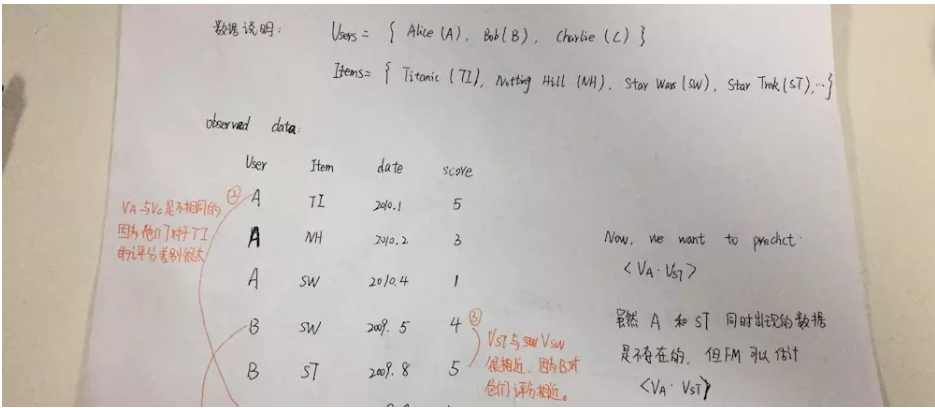 数据说明: Users = { Alice (A), Bob(B), Charlie (C) }
Items= { Titanic (TI), Notting Hill (NH), Star Wars (SW), Star Trek (ST),...}
observed data:
User Item date score
② A TI 2010.1 5
A NH 2010.2 3
A SW 2010.4 1
B SW 2009.5 4 ③
B ST 2009.8 5
VA与VC是不相同的
因为他们对于TI
的评分差别很大
VST与VSW
很相近、因为B对
他们评分相近。
Now, we want to predict
<VA·VST>
虽然 A 和 ST 同时出现的数据
是不存在的, 但FM可以估计
<VA·VST>